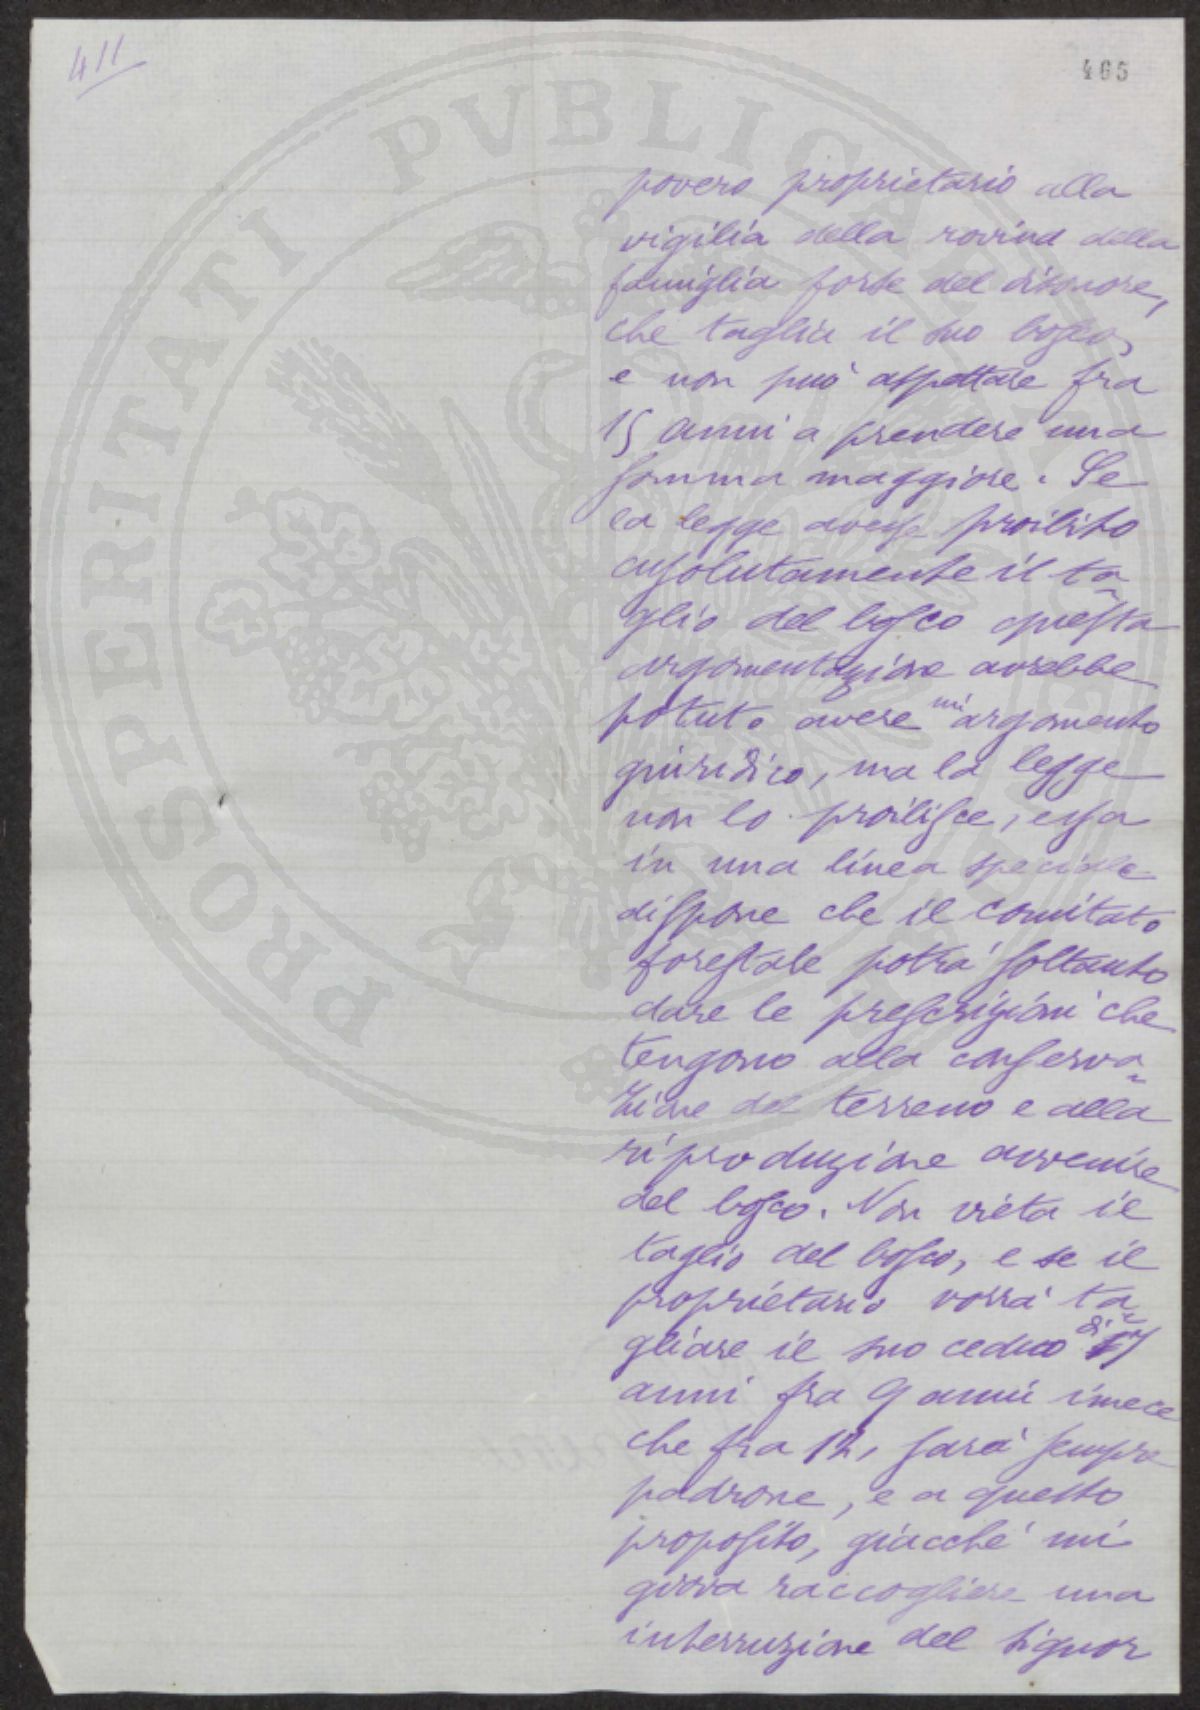 411
465
povero proprietario alla
vigilia della rovina della
famiglia forse del disonore,
che taglia il suo bosco,
e non può aspettare fra
15 anni a prendere una
somma maggiore. Se
la legge avesse proibito
assolutamente il ta=
glio del bosco questa
argomentazione avrebbe
potuto avere un argomento
giuridico, ma la legge
non lo proibisce, essa
in una linea speciale
dispone che il comitato
forestale potrà soltanto
dare le prescrizioni che
tengono alla conserva=
zione del terreno e alla
riproduzione avvenire
del bosco. Non vieta il
taglio del bosco, e se il
proprietario vorrà ta=
gliare il suo ceduo di
anni fra 9 anni invece
che fra 12, sarà sempre
padrone, e a questo
proposito, giacché mi
giova raccogliere una
interruzione del signor
PUBLICAE
PROSPERITATI